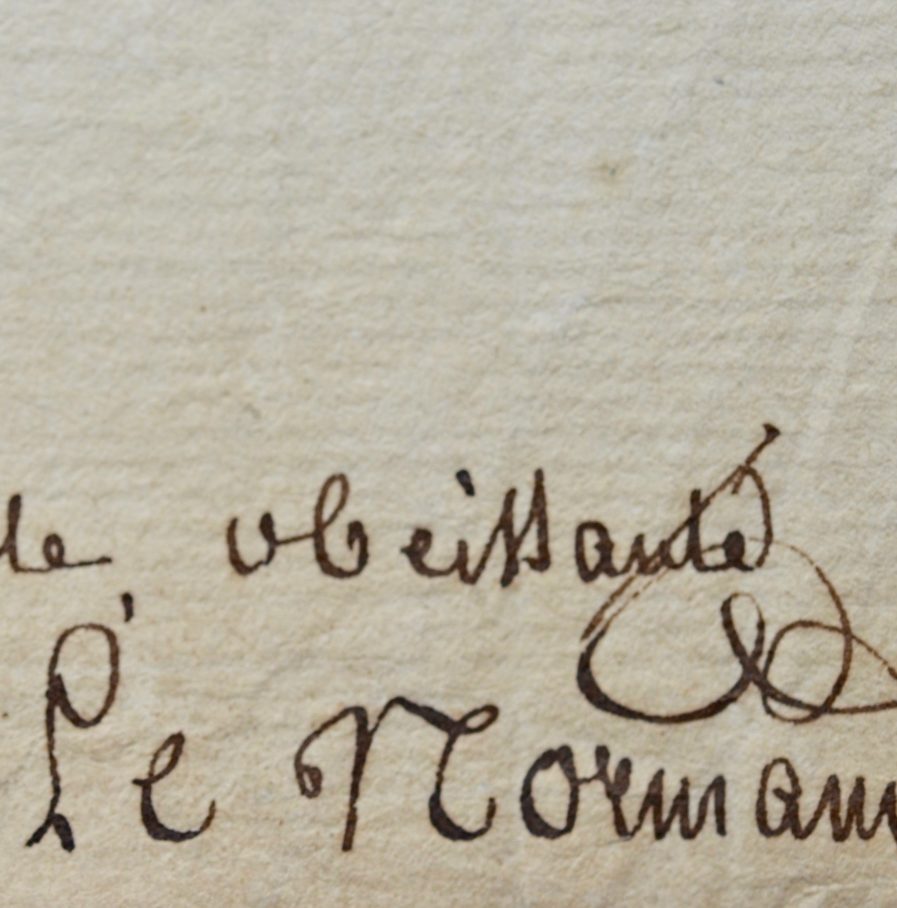 te obeissante
Le Norman